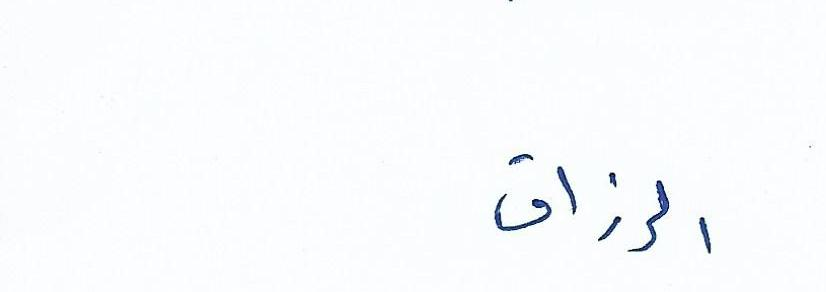 الرزاق